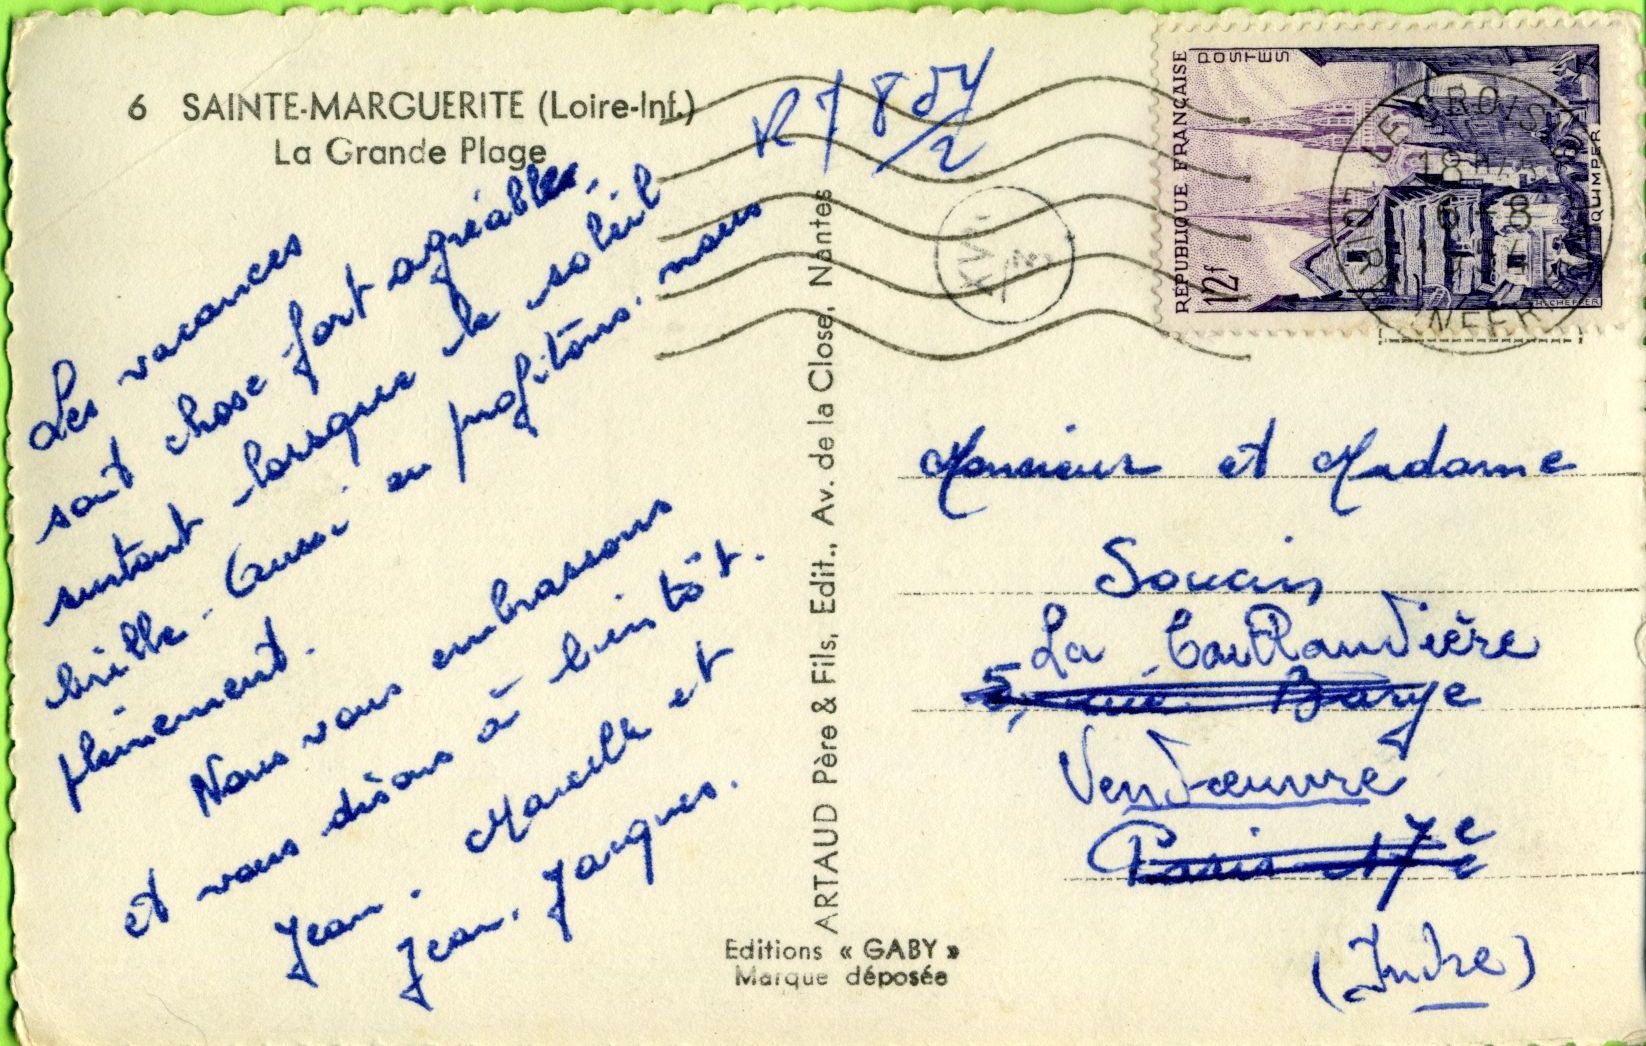 6 SAINTE-MARGUERITE (Loire-Inf.)
La Grande Plage
R 7 8 54
/2
Les vacances
sont chose fort agréables,
surtout lorsque le soleil
brille. Aussi en profitons-nous
pleinement.
Nous vous embrassons
et vous disons à bientôt.
Jean. Marcelle et
Jean. Jacques.
ARTAUD Père & Fils, Edit., Av. de la Close, Nantes
Editions « GABY »
Marque déposée
REPUBLIQUE FRANÇAISE
POSTES
12f
QUIMPER
H.CHEFFER
18H45
6-8
XVII
Monsieur et Madame
La
5, rue Barye
Vendœuvre
Paris 17e
(Indre)